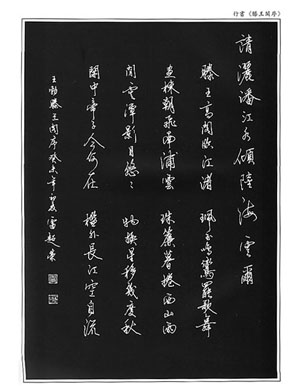 行書《滕王閣序》
請灑潘江各傾陸海云爾
滕王高閣臨江渚 珮玉鳴鸞罷歌舞
畫棟朝飛南浦雲 珠簾暮捲西山雨
閒雲潭影日悠〻 物換星移幾度秋
閣中帝子今何在 檻外長江空自流
王勃滕王閣序癸未年